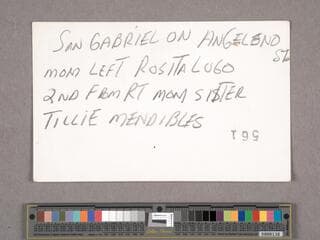 SAN GABRIEL ON ANGELENO ST
MOM LEFT ROSITA LUGO
2ND FROM RT MOM SISTER
TILLIE MENDIBLES
561